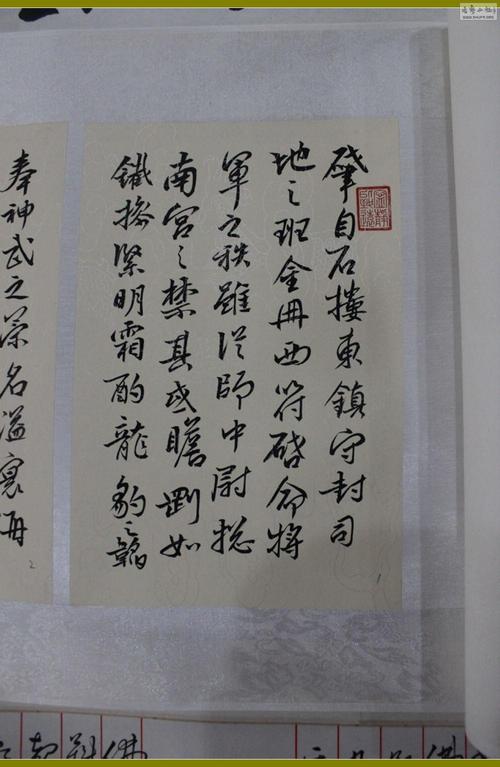 肇自石摟東鎮守封司
地之班金冊西符啓命將
軍之秩雖從師中尉摠
南宮之禁其或瞻剛如
鐵操緊明霜酌龍豹之韜
1
奉神武之榮名溢寰海
2